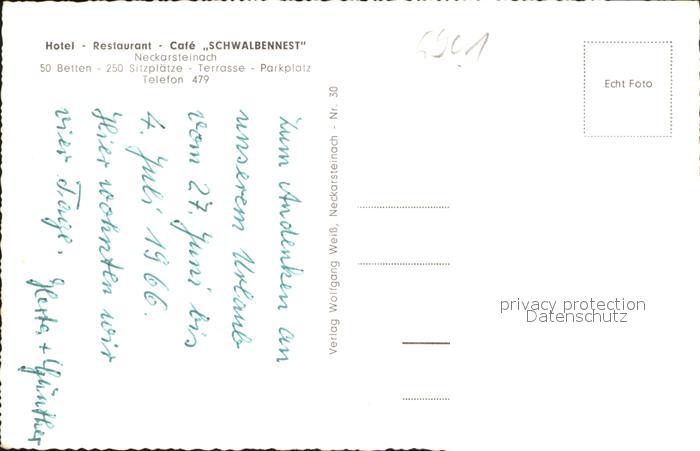 Hotel - Restaurant - Café „SCHWALBENNEST"
Neckarsteinach
50 Betten - 250 Sitzplätze - Terrasse - Parkplatz
Telefon 479
Zum Andenken an
unserem Urlaub
vom 27. Juni bis
4. Juli 1966.
Hier wohnten wir
vier Tage.
Herta + Günther
Verlag Wolfgang Weiß, Neckarsteinach - Nr. 30
Echt Foto
privacy protection
Datenschutz